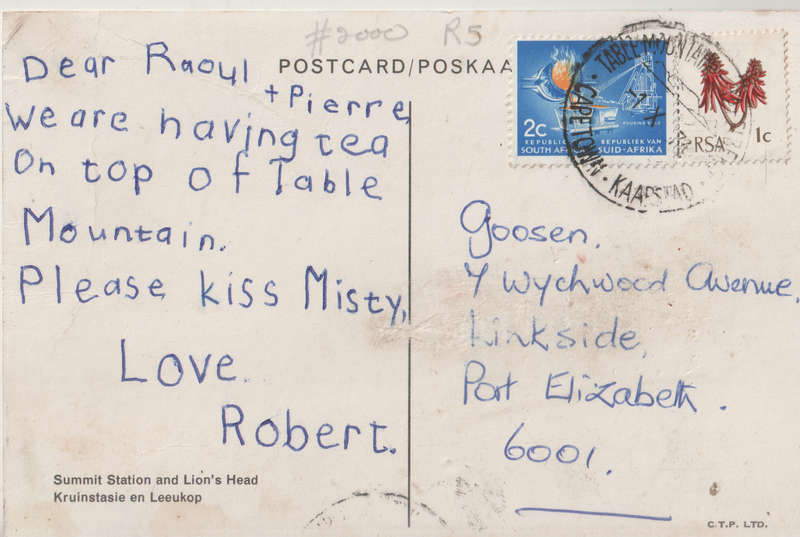 #2000 R5
POSTCARD/POSKAA
Dear Raoul
+ Pierre,
We are having tea
On top of Table
Mountain.
Please kiss Misty,
Love.
Robert.
Summit Station and Lion's Head
Kruinstasie en Leeukop
2c
POURING GOLD
REPUBLIC REPUBLIEK VAN
SOUTH AF SUID-AFRIKA
RSA 1c
TABLE MOUNTAI
CAPE TOWN · KAAPSTAD
Goosen,
7 Wychwood Avenue,
Linkside,
Port Elizabeth.
6001.
C.T.P. LTD.